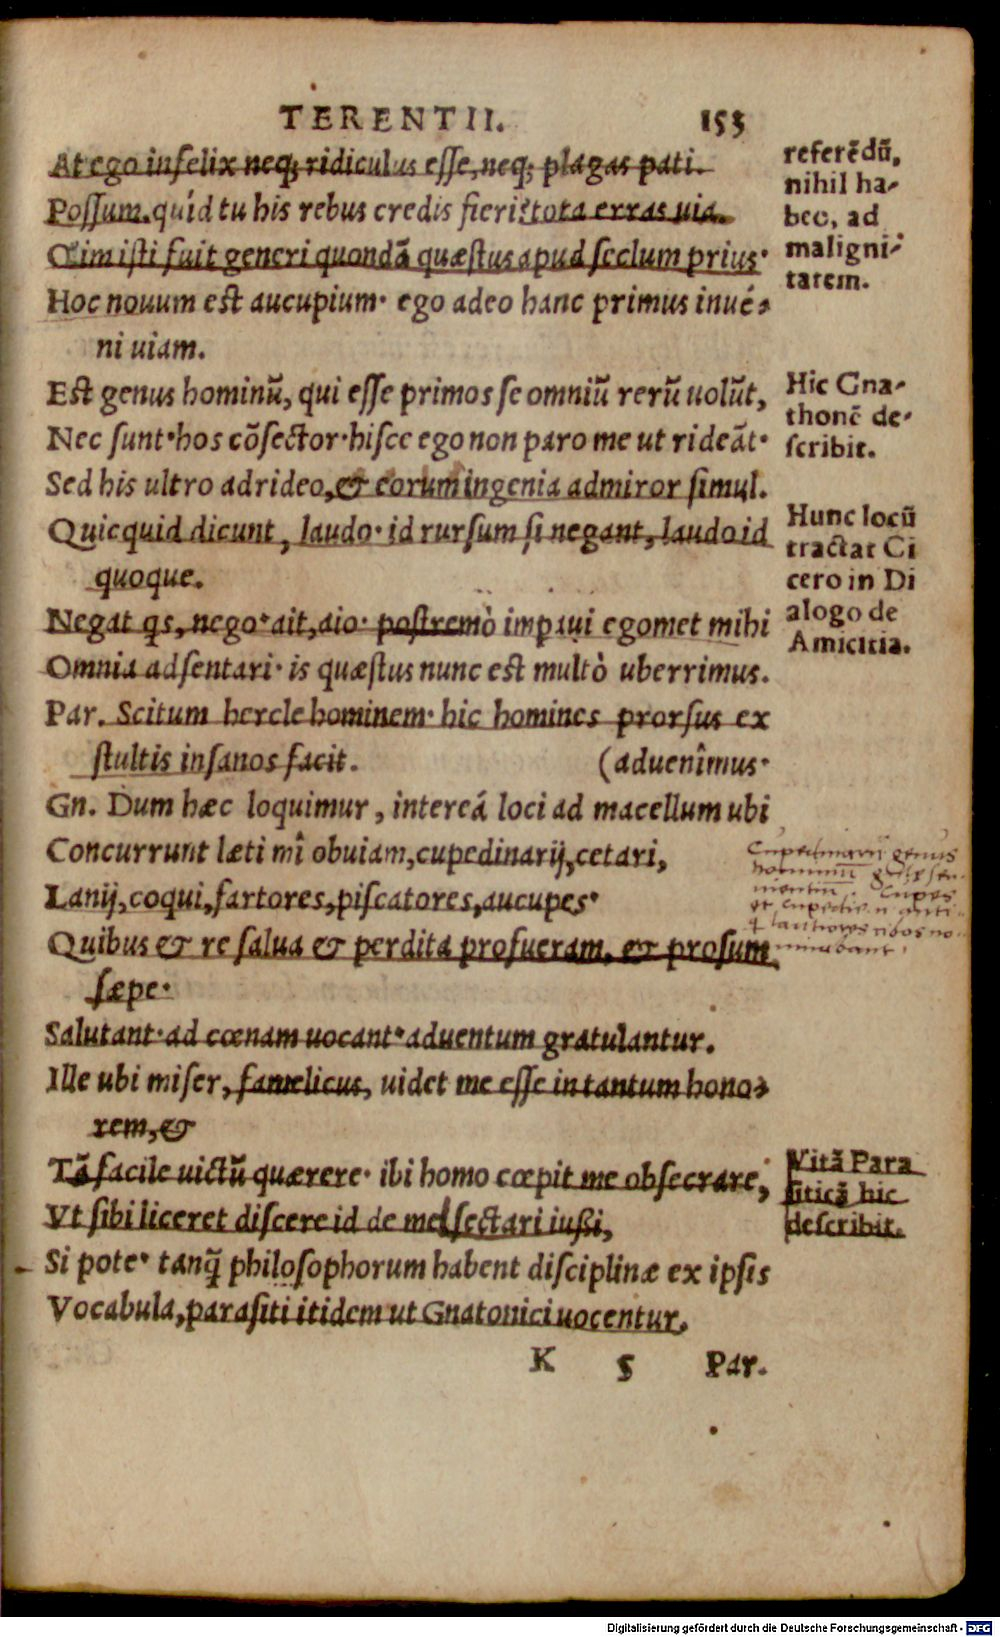 TERENTII. 153
At ego infelix neq; ridiculus esse, neq; plagas pati.
Possum. quid tu his rebus credis fieri? tota erras uia.
Olim isti fuit generi quondã quæstus apud seclum prius·
Hoc nouum est aucupium· ego adeo hanc primus inué-
ni uiam.
Est genus hominũ, qui esse primos se omniũ rerũ uolũt,
Nec sunt·hos cõsector·hisce ego non paro me ut rideãt·
Sed his ultro adrideo, & eorum ingenia admiror simul.
Quicquid dicunt, laudo· id rursum si negant, laudo id
quoque.
Negat qs, nego·ait, aio· postremò impaui egomet mihi
Omnia adsentari· is quæstus nunc est multò uberrimus.
Par. Scitum hercle hominem· hic homines prorsus ex
stultis insanos facit. (aduenîmus·
Gn. Dum hæc loquimur, intereá loci ad macellum ubi
Concurrunt læti mî obuiam, cupedinarij, cetari,
Lanij, coqui, fartores, piscatores, aucupes·
Quibus & re salua & perdita profueram, & prosum
sæpe·
Salutant·ad cœnam uocant·aduentum gratulantur.
Ille ubi miser, famelicus, uidet me esse in tantum hono-
rem, &
Tã facile uictũ quærere· ibi homo cœpit me obsecrare,
Vt sibi liceret discere id de me sectari iußi,
Si pote· tanq̃ philosophorum habent disciplinæ ex ipsis
Vocabula, parasiti itidem ut Gnatonici uocentur.
K 5 Par.
referẽdũ,
nihil ha-
beo, ad
maligni-
tatem.
Hic Gna-
thonẽ de-
scribit.
Hunc locũ
tractat Ci
cero in Di
alogo de
Amicitia.
Cupedinarii genus
nominant
Vitã Para
siticã hic
describit.
Digitalisierung gefördert durch die Deutsche Forschungsgemeinschaft - DFG